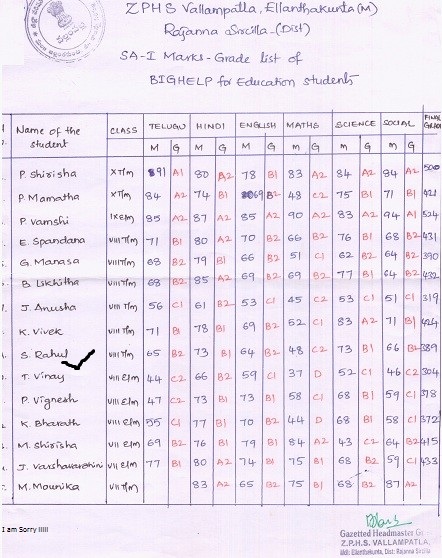 ZPHS Vallampatla, Ellanthakunta(M)
Rajanna Sircilla-(Dist)
SA-I Marks-Grade list of
BIGHELP for Education students
Name of the student CLASS TELUGU HINDI ENGLISH MATHS SCIENCE SOCIAL FINAL GRADE
M G M G M G M G M G M G
P. Shirisha X T/m 91 A1 80 A2 78 B1 83 A2 84 A2 84 A2 500
P. Mamatha X T/m 84 A2 74 B1 69 B2 48 C2 75 B1 71 B1 421
P. Vamshi IX E/m 85 A2 87 A2 85 A2 90 A2 83 A2 94 A1 524
E. Spandana VIII T/m 71 B1 80 A2 70 B2 66 B2 76 B1 68 B2 431
G. Manasa VIII T/m 68 B2 79 B1 66 B2 51 C1 62 B2 64 B2 390
B. Likhitha VIII T/m 68 B2 85 A2 69 B2 69 B2 77 B1 64 B2 432
J. Anusha VIII T/m 56 C1 61 B2 53 C1 45 C2 53 C1 51 C1 319
K. Vivek VIII T/m 71 B1 78 B1 69 B2 52 C1 83 A2 71 B1 424
S. Rahul VIII T/m 65 B2 73 B1 64 B2 48 C2 73 B1 66 B2 389
T. Vinay VII E/m 44 C2 66 B2 59 C1 37 D 52 C1 46 C2 304
P. Vignesh VII E/m 47 C2 73 B1 73 B1 58 C1 68 B1 59 C1 378
K. Bharath VII E/m 55 C1 77 B1 70 B2 44 D 68 B1 58 C1 372
M. Shirisha VII E/m 69 B2 76 B1 79 B1 84 A2 43 C2 64 B2 415
J. Varshavardhini VII E/m 77 B1 80 A2 74 B1 75 B1 68 B2 59 C1 433
M. Mounika VII T/m 83 A2 65 B2 75 B1 68 B2 87 A2
I am Sorry !!!!!
Gazetted Headmaster
Z.P.H.S. VALLAMPATLA,
Mdl: Ellanthakunta, Dist: Rajanna Sircilla